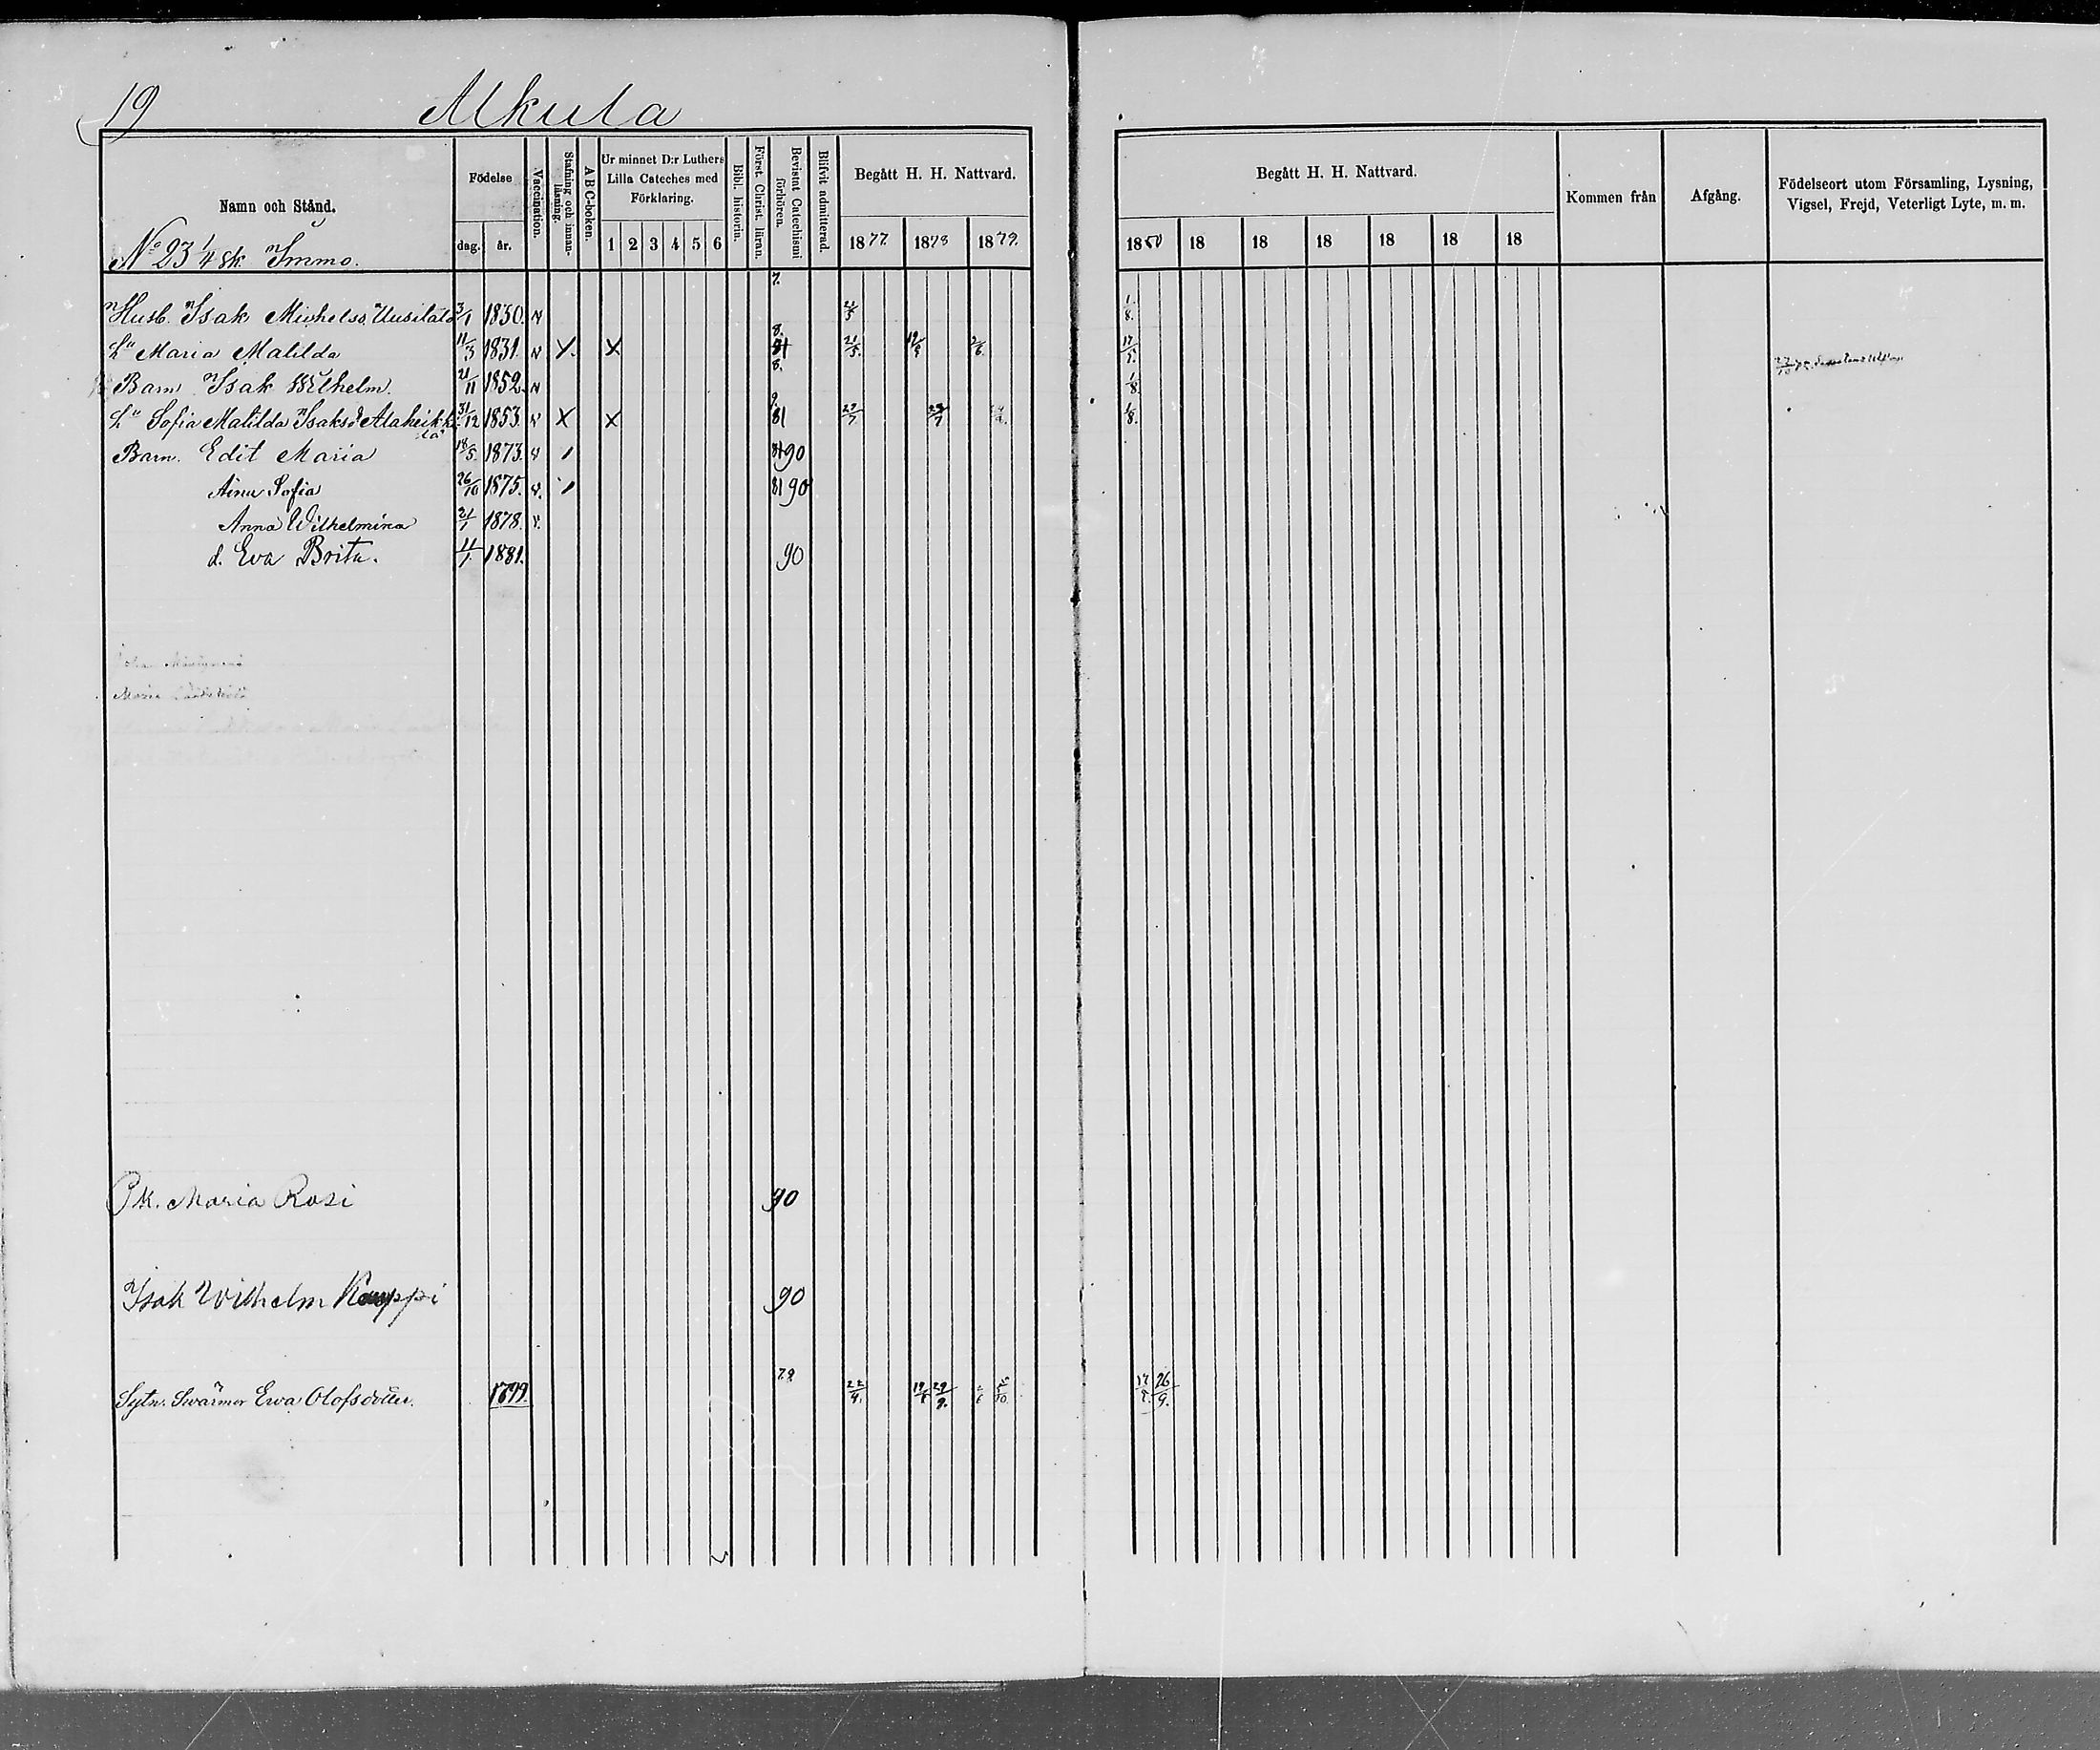 19
Alkula
Namn och Stånd.
Födelse
dag. år.
Vaccination.
Stafning och innan-läsning.
A B C-boken.
Ur minnet D:r Luthers
Lilla Cateches med
Förklaring.
1 2 3 4 5 6
Bibl. historia.
Först. Christ. läran.
Bevistat Catechismi förhören.
Blifvit admitterad.
Begått H. H. Nattvard.
1877. 1878 1879.
Begått H. H. Nattvard.
1880 18 18 18 18 18 18
Kommen från
Afgång.
Födelseort utom Församling, Lysning,
Vigsel, Frejd, Veterligt Lyte, m. m.
No 23 1/4 sk. Immo.
7.
Husb. Isak Michelss. Uusitalo 3/1 1830. 1/8.
8.
hu Maria Matilda 11/3 1831. X 81 21/5. 17/5.
8.
Barn Isak Wilhelm. 21/11 1852. 1/8.
9.
hu Sofia Matilda Isaksd Alaheikkilä 31/12 1853. X X 81 29/9 1/8.
Barn. Edit Maria 18/5. 1873. 81 90
Aina Sofia 26/10 1875. 81 90
Anna Wilhelmina 21/1 1878.
d. Eva Brita. 11/1. 1881. 90
Maria
Maria Rosi 90
Isak Wilhelm Kauppi 90
79
Sytn. Swärmor Ewa Olofsdotter. 1799. 22/9. 29/9. 26/9.